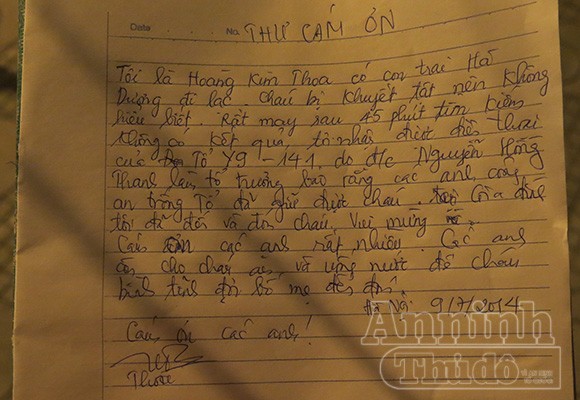 Date No. THƯ CÁM ƠN
Tôi là Hoàng Kim Thoa có con trai Hà
Dương đi lạc cháu bị khuyết tật nên không
hiểu biết. Rất may sau 45 phút tìm kiếm
không có kết quả, tôi nhận được điện thoại
của Tổ Y9 - 141. do đ/c Nguyễn Hồng
Thanh làm tổ trưởng báo rằng các anh công
an trong Tổ đã giữ được cháu. Gia đình
tôi đã đến và đón cháu, vui mừng
Cám ơn các anh rất nhiều. Các anh
cho cháu ăn, và uống nước để cháu
bình tĩnh đợi bố mẹ đến đón.
Hà Nội 9/7/2014
Cám ơn các anh!
Thoa
Anninh
Thủ đô